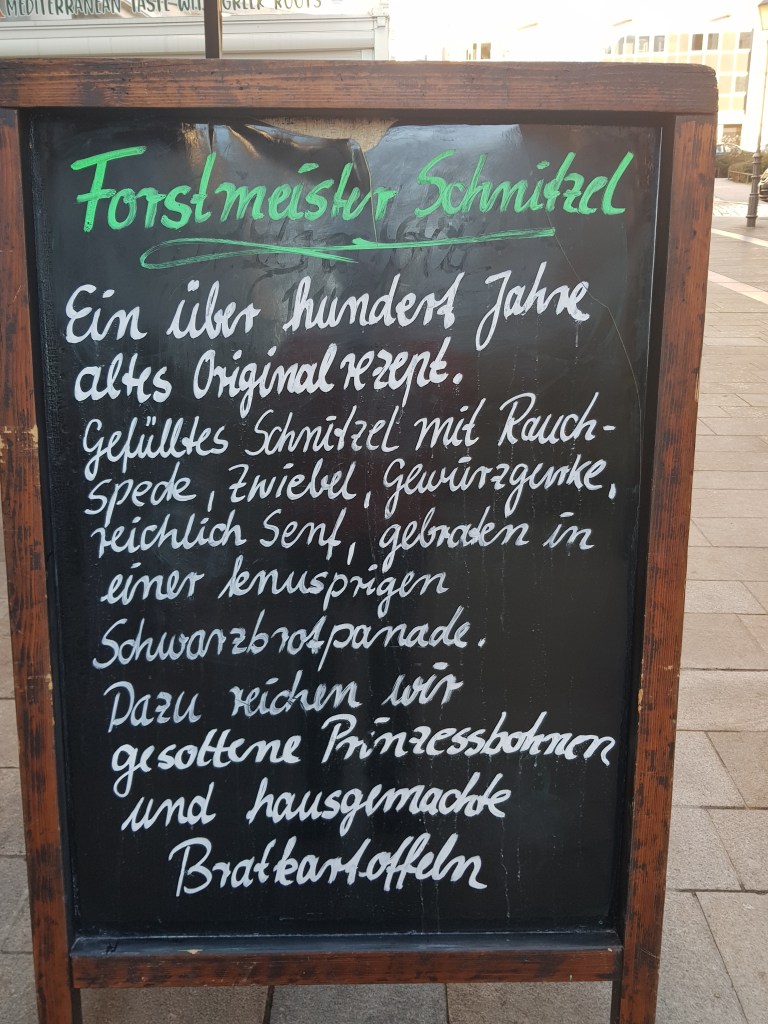 MEDITERRANEAN TASTE WITH GREEK ROOTS
Forstmeister Schnitzel
Ein über hundert Jahre
altes Originalrezept.
Gefülltes Schnitzel mit Rauch-
speck, Zwiebel, Gewürzgurke,
reichlich Senf, gebraten in
einer knusprigen
Schwarzbrotpanade.
Dazu reichen wir
gesottene Prinzessbohnen
und hausgemachte
Bratkartoffeln